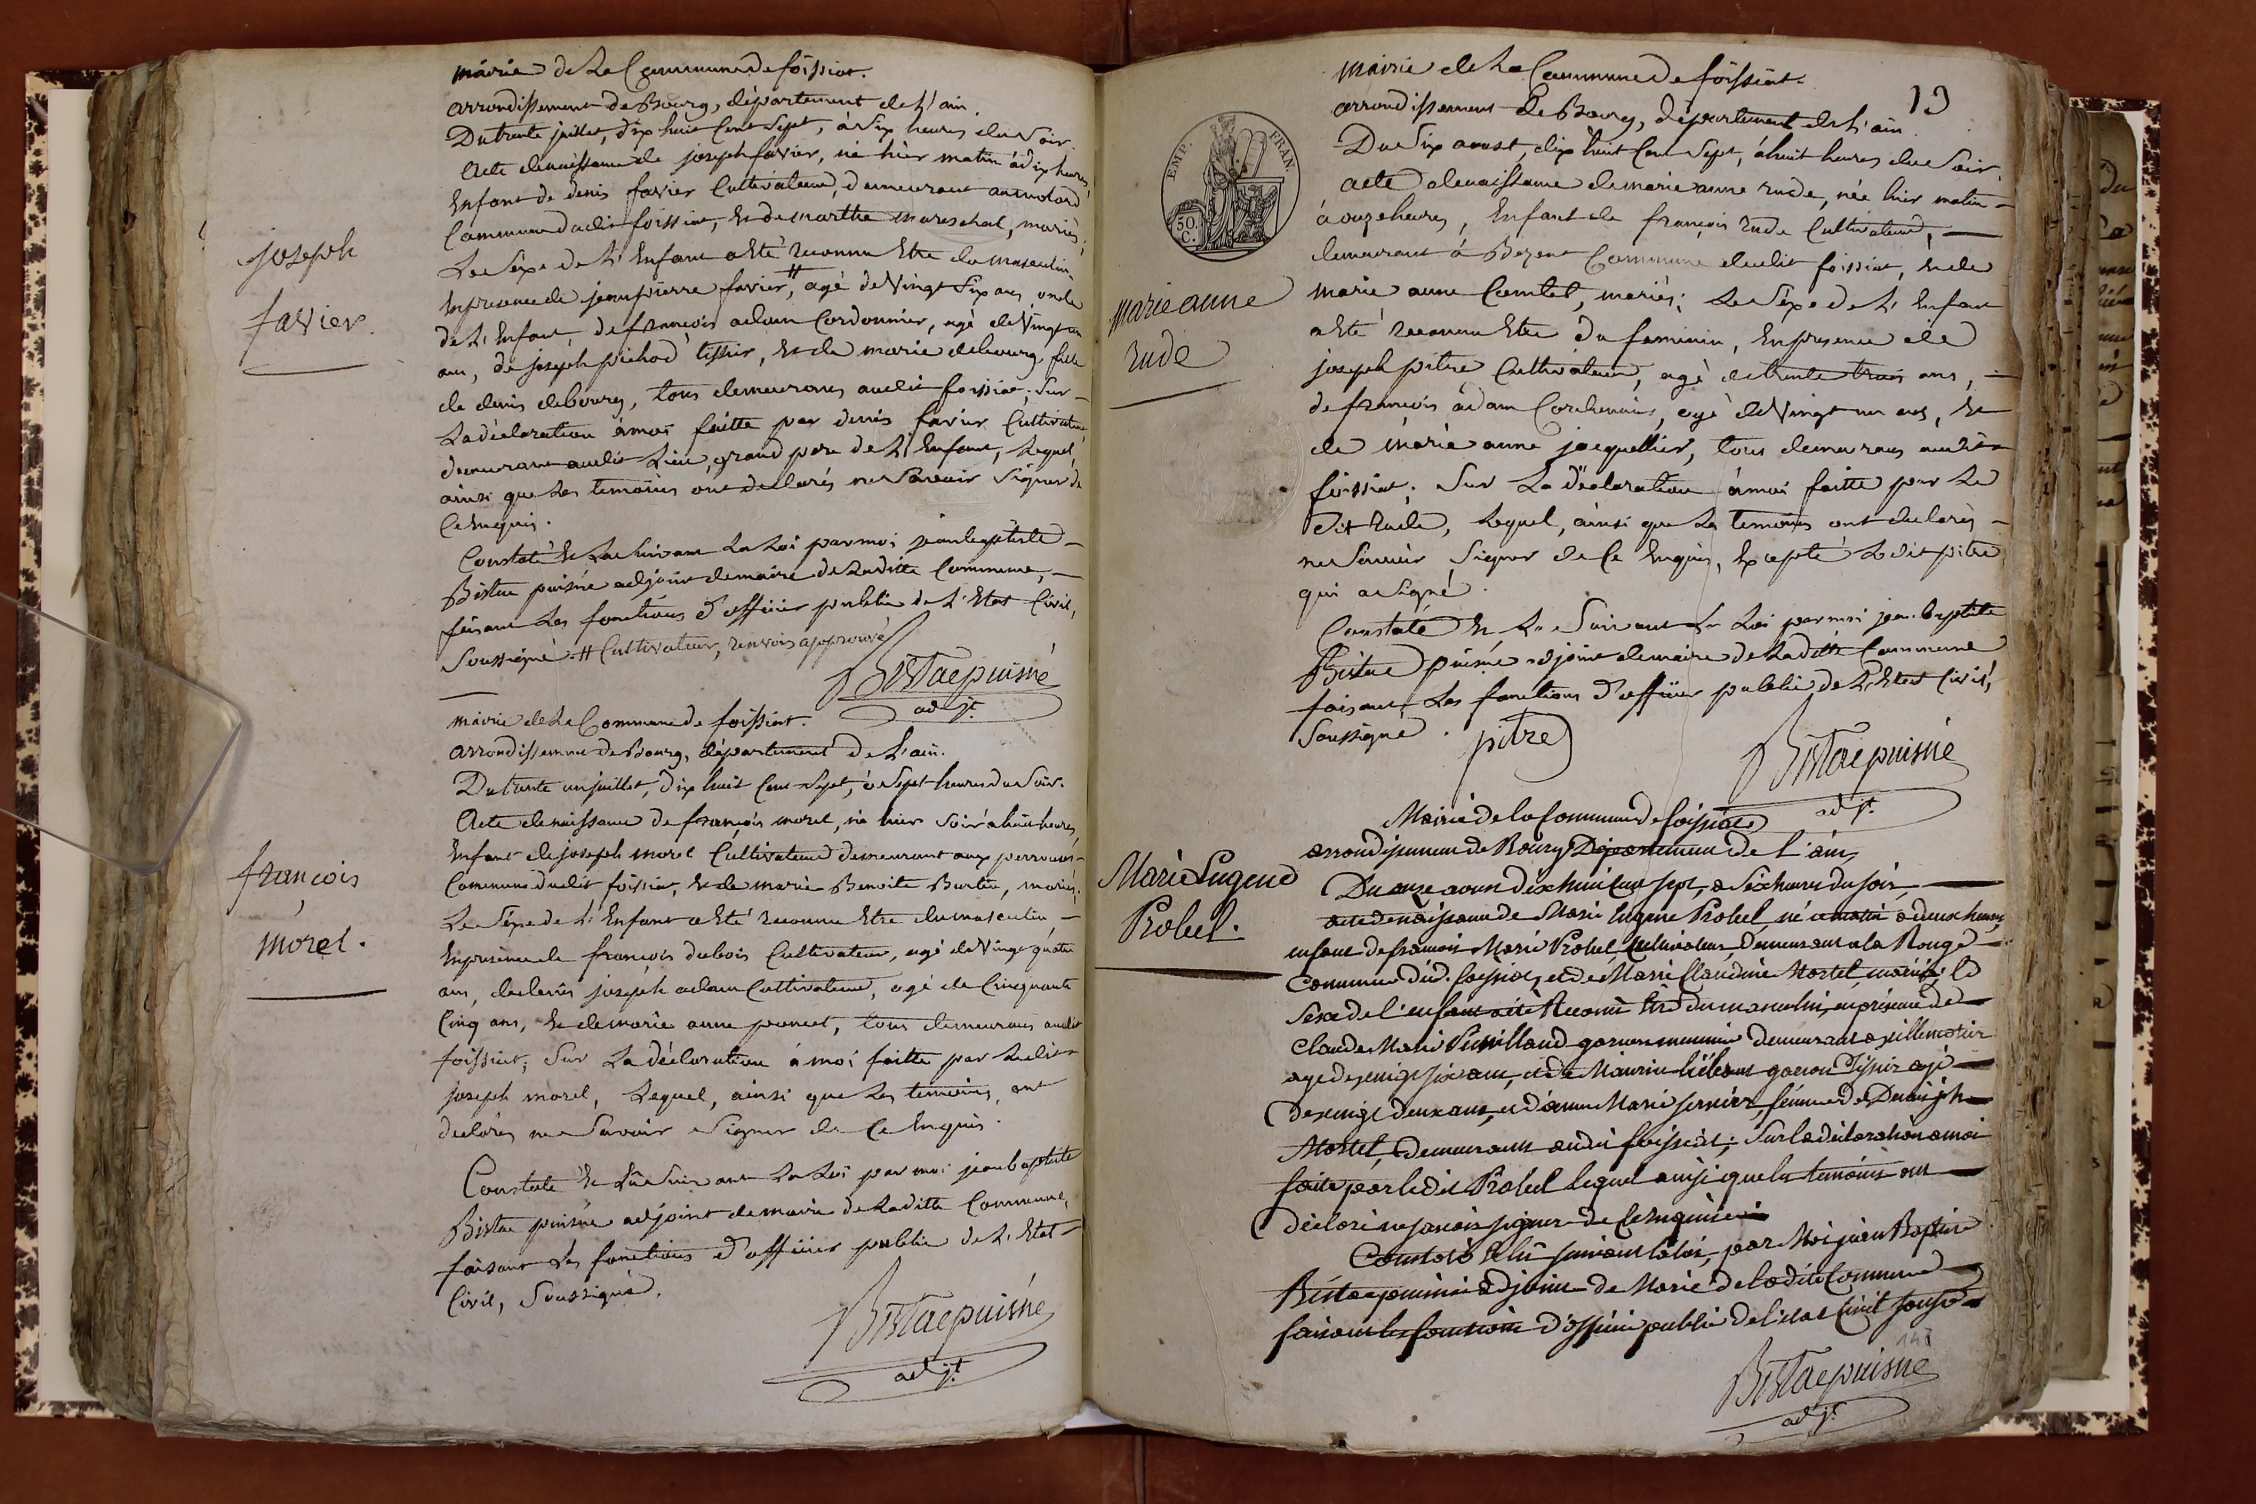 mairie de La Commune de foissiat.
arrondissement de Bourg, département de L'ain.
Du trente juillet, dix huit Cent Sept, à Six heures du Soir.
Acte de naissance de joseph favier, né hier matin à dix heures,
Enfant de denis favier Cultivateur, demeurant
Commune dudit foissiat, Et de marthe mareschal, mariés;
Le Séxe de L'Enfant a Eté reconnu Etre du masculin,
En presence de jean pierre favier, # agé de Vingt Six ans, oncle
de L'Enfant, de françois adam Cordonnier, agé de Vingt un
ans, de joseph pichod tissier, Et de marie debourg fille
de denis debourg, tous demeurans audit foissiat; Sur
La déclaration à moi faitte par denis favier Cultivateur
demeurant audit Lieu, grand pere de L'Enfant, Lequel,
ainsi que Les temoins ont declarés ne Savoir Signer de
Ce Enquis.
Constaté Et Lu Suivant La Loi par moi jean baptiste
Bistac puisné adjoint de maire de Laditte Commune,
faisant Les fonctions d'officier public de L'Etat Civil,
Soussigné. # Cultivateur, renvois approuvé
Bistac puisné
adjt.
joseph
favier.
mairie de La Commune de foissiat.
arrondissement de Bourg, département de L'ain.
Du trente un juillet, dix huit Cent Sept, à Sept heures du Soir.
Acte de naissance de françois morel, né hier Soir à huit heures,
Enfant de joseph morel Cultivateur demeurant aux
Commune dudit foissiat, Et de marie Benoite Burtin, mariés;
Le Séxe de L'Enfant a Eté reconnu Etre du masculin
En presence de françois dubois Cultivateur, agé de Vingt quatre
ans, de denis joseph adam Cultivateur, agé de Cinquante
Cinq ans, Et de marie anne poncet, tous demeurans audit
foissiat; Sur La déclaration à moi faitte par Ledit
joseph morel, Lequel, ainsi que Les temoins, ont
declarés ne Savoir Signer de Ce Enquis.
Constaté Et Lu Suivant La Loi par moi jean baptiste
Bistac puisné adjoint de maire de Laditte Commune,
faisant Les fonctions d'officier public de L'Etat
Civil, Soussigné.
Bistac puisné
adjt.
françois
morel.
19
EMP. FRAN.
50.
C.
mairie de La Commune de foissiat.
arrondissement de Bourg, département de L'ain.
Du Six aoust, dix huit Cent Sept, à huit heures du Soir.
acte de naissance de marie anne rude, née hier matin
à onze heures, Enfant de françois rude Cultivateur,
demeurant à Bezent Commune dudit foissiat, Et de
marie anne Comtet, mariés; Le Séxe de L'Enfant
a Eté reconnu Etre du feminin, En presence de
joseph pitre Cultivateur, agé de trente trois ans,
de françois adam Cordonnier, agé de Vingt un ans, Et
de marie anne jacquellier, tous demeurans audit
foissiat; Sur La déclaration à moi faitte par Le
dit rude, Lequel, ainsi que Les temoins ont declarés
ne Savoir Signer de Ce Enquis, Excepté Ledit pitre
qui a Signé.
Constaté Et Lu Suivant La Loi par moi jean baptiste
Bistac puisné adjoint de maire de Laditte Commune
faisant Les fonctions d'officier public de L'Etat Civil,
Soussigné.
pitre
Bistac puisné
adjt.
marie anne
rude
Mairie de la Commune de foissiat
arrondissement de Bourg Département de l'ain
Du onze aout dix huit Cent Sept, a Six heures du soir,
acte de naissance de Marie Eugene Probel, né ce matin a deux heures,
enfant de francois Marie Probel, Cultivateur, Demeurant a la Rouge
Commune dud. foissiat, et de Marie Claudine Mortel, mariés; le
Sexe de l'enfant a été Reconnu être du masculin, en présence de
Claude Marie garcon meunier Demeurant a villemotier
agé de vingt six ans, et de Maurice garcon Tissier agé
de vingt deux ans, et d'anne Marie femme de Denis jh
Mortel, Demeurants audit foissiat; Sur la déclaration a moi
faite par ledit Probel lequel ainsi que les temoins ont
déclaré ne savoir signer de Ce enquis
Constaté et lû suivant la loi, par Moi jean Baptiste
Bistac puisné adjoint de Marie de ladite Commune
faisant les fonctions d'officier public de l'état Civil soussigné
148
Bistac puisné
adjt.
Marie Eugene
Probel.